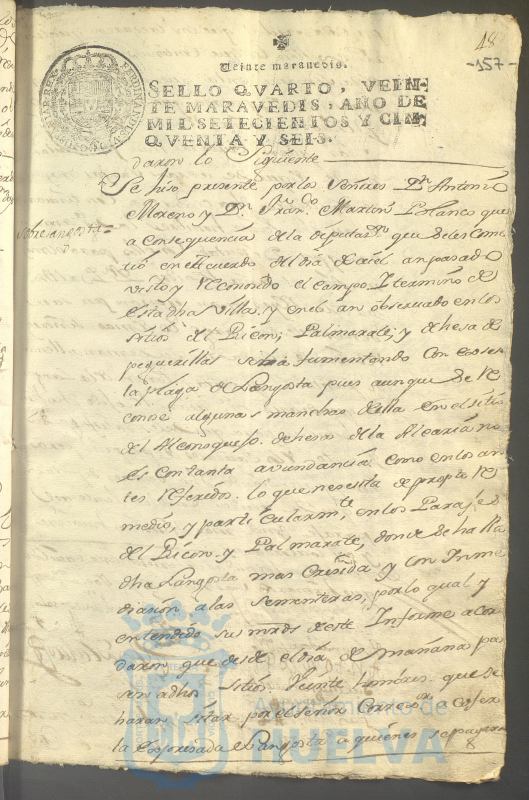 18
-157-
Veinte maravedis.
SELLO QVARTO, VEIN-
TE MARAVEDIS, AÑO DE
MIL SETECIENTOS Y CIN-
QVENTA Y SEIS.
daron lo Siguiente
Se hiso presente por los Señores Dn Antonio
Moreno y Dn Franco Martin Blanco que
sobre langosta
a Consequencia de la diputazn que se les Come
tió en el Acuerdo del dia de aier an pasado
visto y Reconosido el campo, I termino de
esta dha Villa; y en el an obseruado en los
sitios del Rincon; Palmarate; y dhesa de
pequerillas se ha fumentando con exseso
la plaga de Langosta pues aunque se Re
conose algunas manchas della en el sitio
del Alcornoquejo dehesa de la Alcaria no
es con tanta avundancia como en los an
tes Referidos. lo que necesita de prompto Re
medio, y particularmte en los Parajes
del Rincon y Palmarate, donde se halla
dha Langosta mas Cresida y con Inme
diasion a las sementeras, por lo qual y
entendido sus mrds de este Informe acor
daron que desde el dia de mañana pa
sen a dhos sitios Veinte hombres que se
haran sitar por el Señor Corregor a coxer
la Expresada Langosta a quienes se pagara
Ayuntamiento de
HUELVA